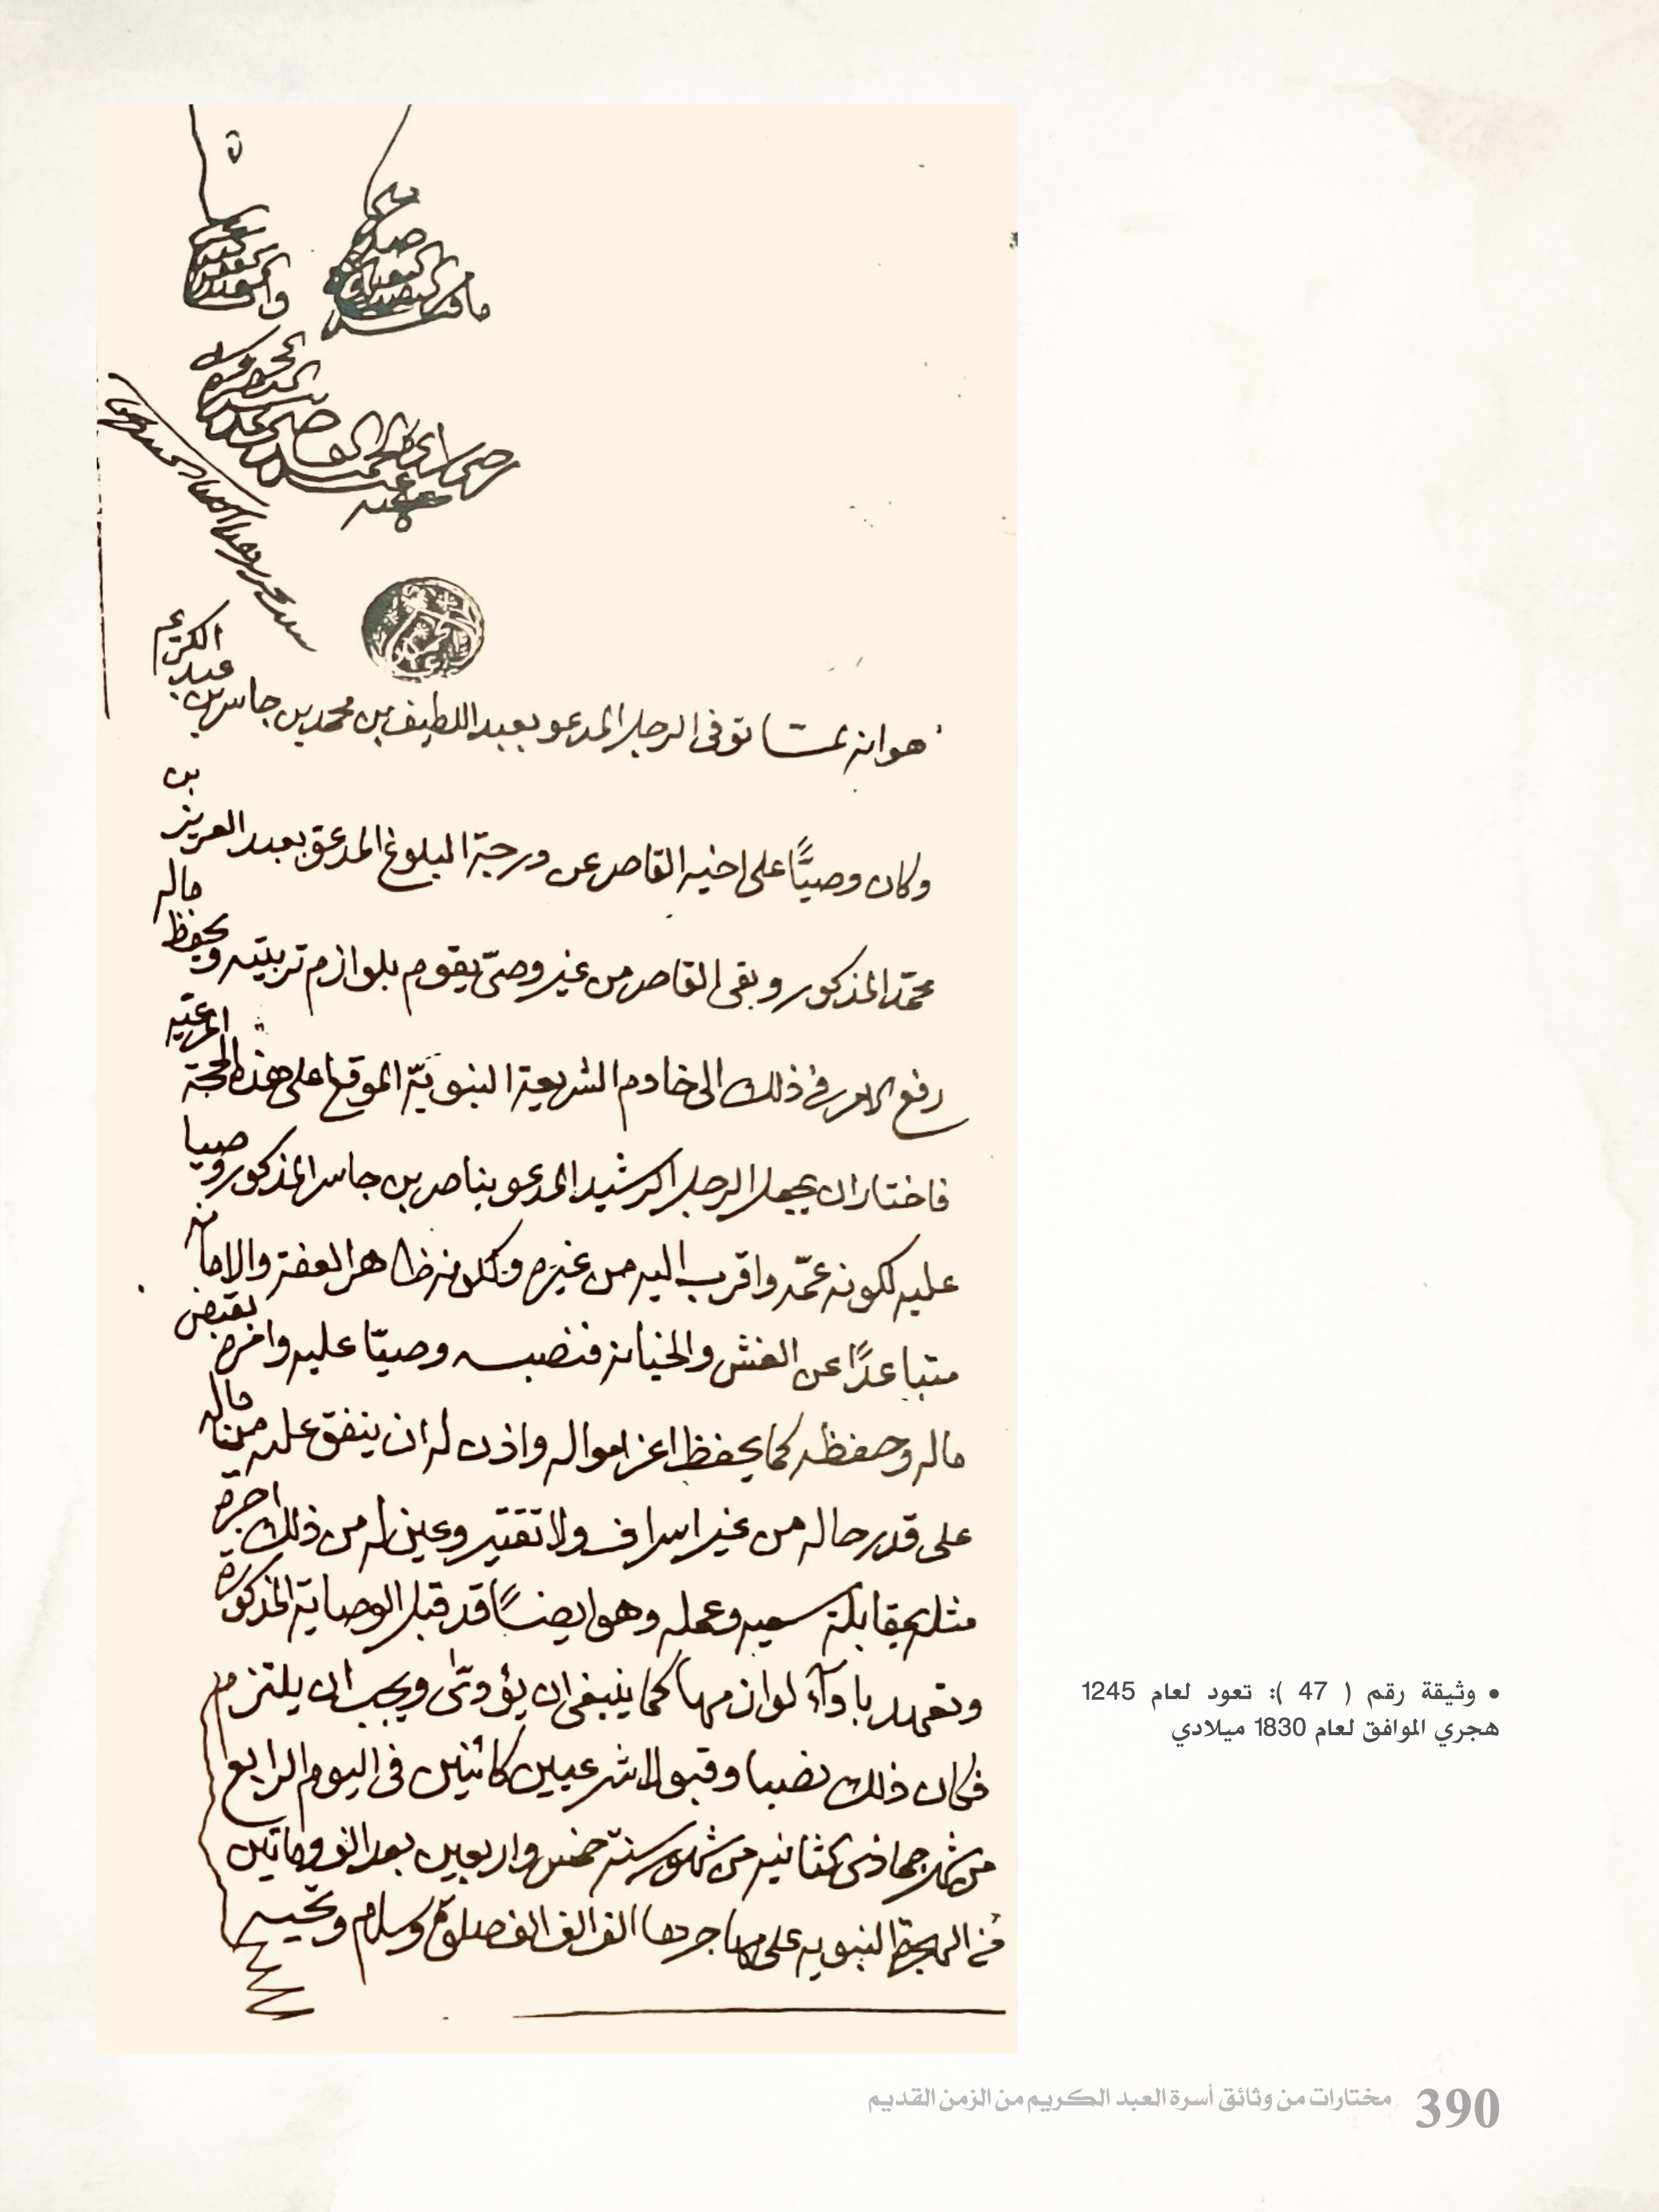 هو انه لمشا توفى الرجل المدعو بعبد اللطيف بن محمد بن جاسر بن عبد الكريم
وكان وصيًّا على اخيه القاصر عن درجة البلوغ المدعوّ بعبد العزيز بن
محمّد المذكور وبقى القاصر من غير وصىّ يقوم بلوازم تربيته ويحفظ ماله
رفع الامر فى ذلك الى خادم الشريعة النبويّة الموقع على هذه الحجة المرعيّه
فاختار ان يجعل الرجل الرشيد المدعو بناصر بن جاسر المذكور وصيا
عليه لكونه عمّه واقرب اليه من غيره ولكونه ظاهر العفة والامانه
متباعدًا عن الغش والخيانة فنصبه وصيّا عليه وامره بقبض
ماله وحفظه كما يحفظ اعز امواله واذن له ان ينفق عليه من ماله
على قدر حاله من غير اسراف ولا تقتير وعين له من ذلك اجرة
مثله بمقابلة سعيه وعمله وهو ايضًا قد قبل الوصاية المذكورة
وتعهد باداء لوازمها كما ينبغى ان يؤدّى ويجب ان يلتزم
فكان ذلك نصبا وقبولا شرعيين كائنين فى اليوم الرابع
من شهر جماذى الثانيه من شهور سنة خمس واربعين بعد الف ومائتين
من الهجرة النبويه على مهاجرها الف الف الف صلوة وسلام وتحيه
• وثيقة رقم ( 47 ): تعود لعام 1245
هجري الموافق لعام 1830 ميلادي
390 مختارات من وثائق أسرة العبد الكريم من الزمن القديم